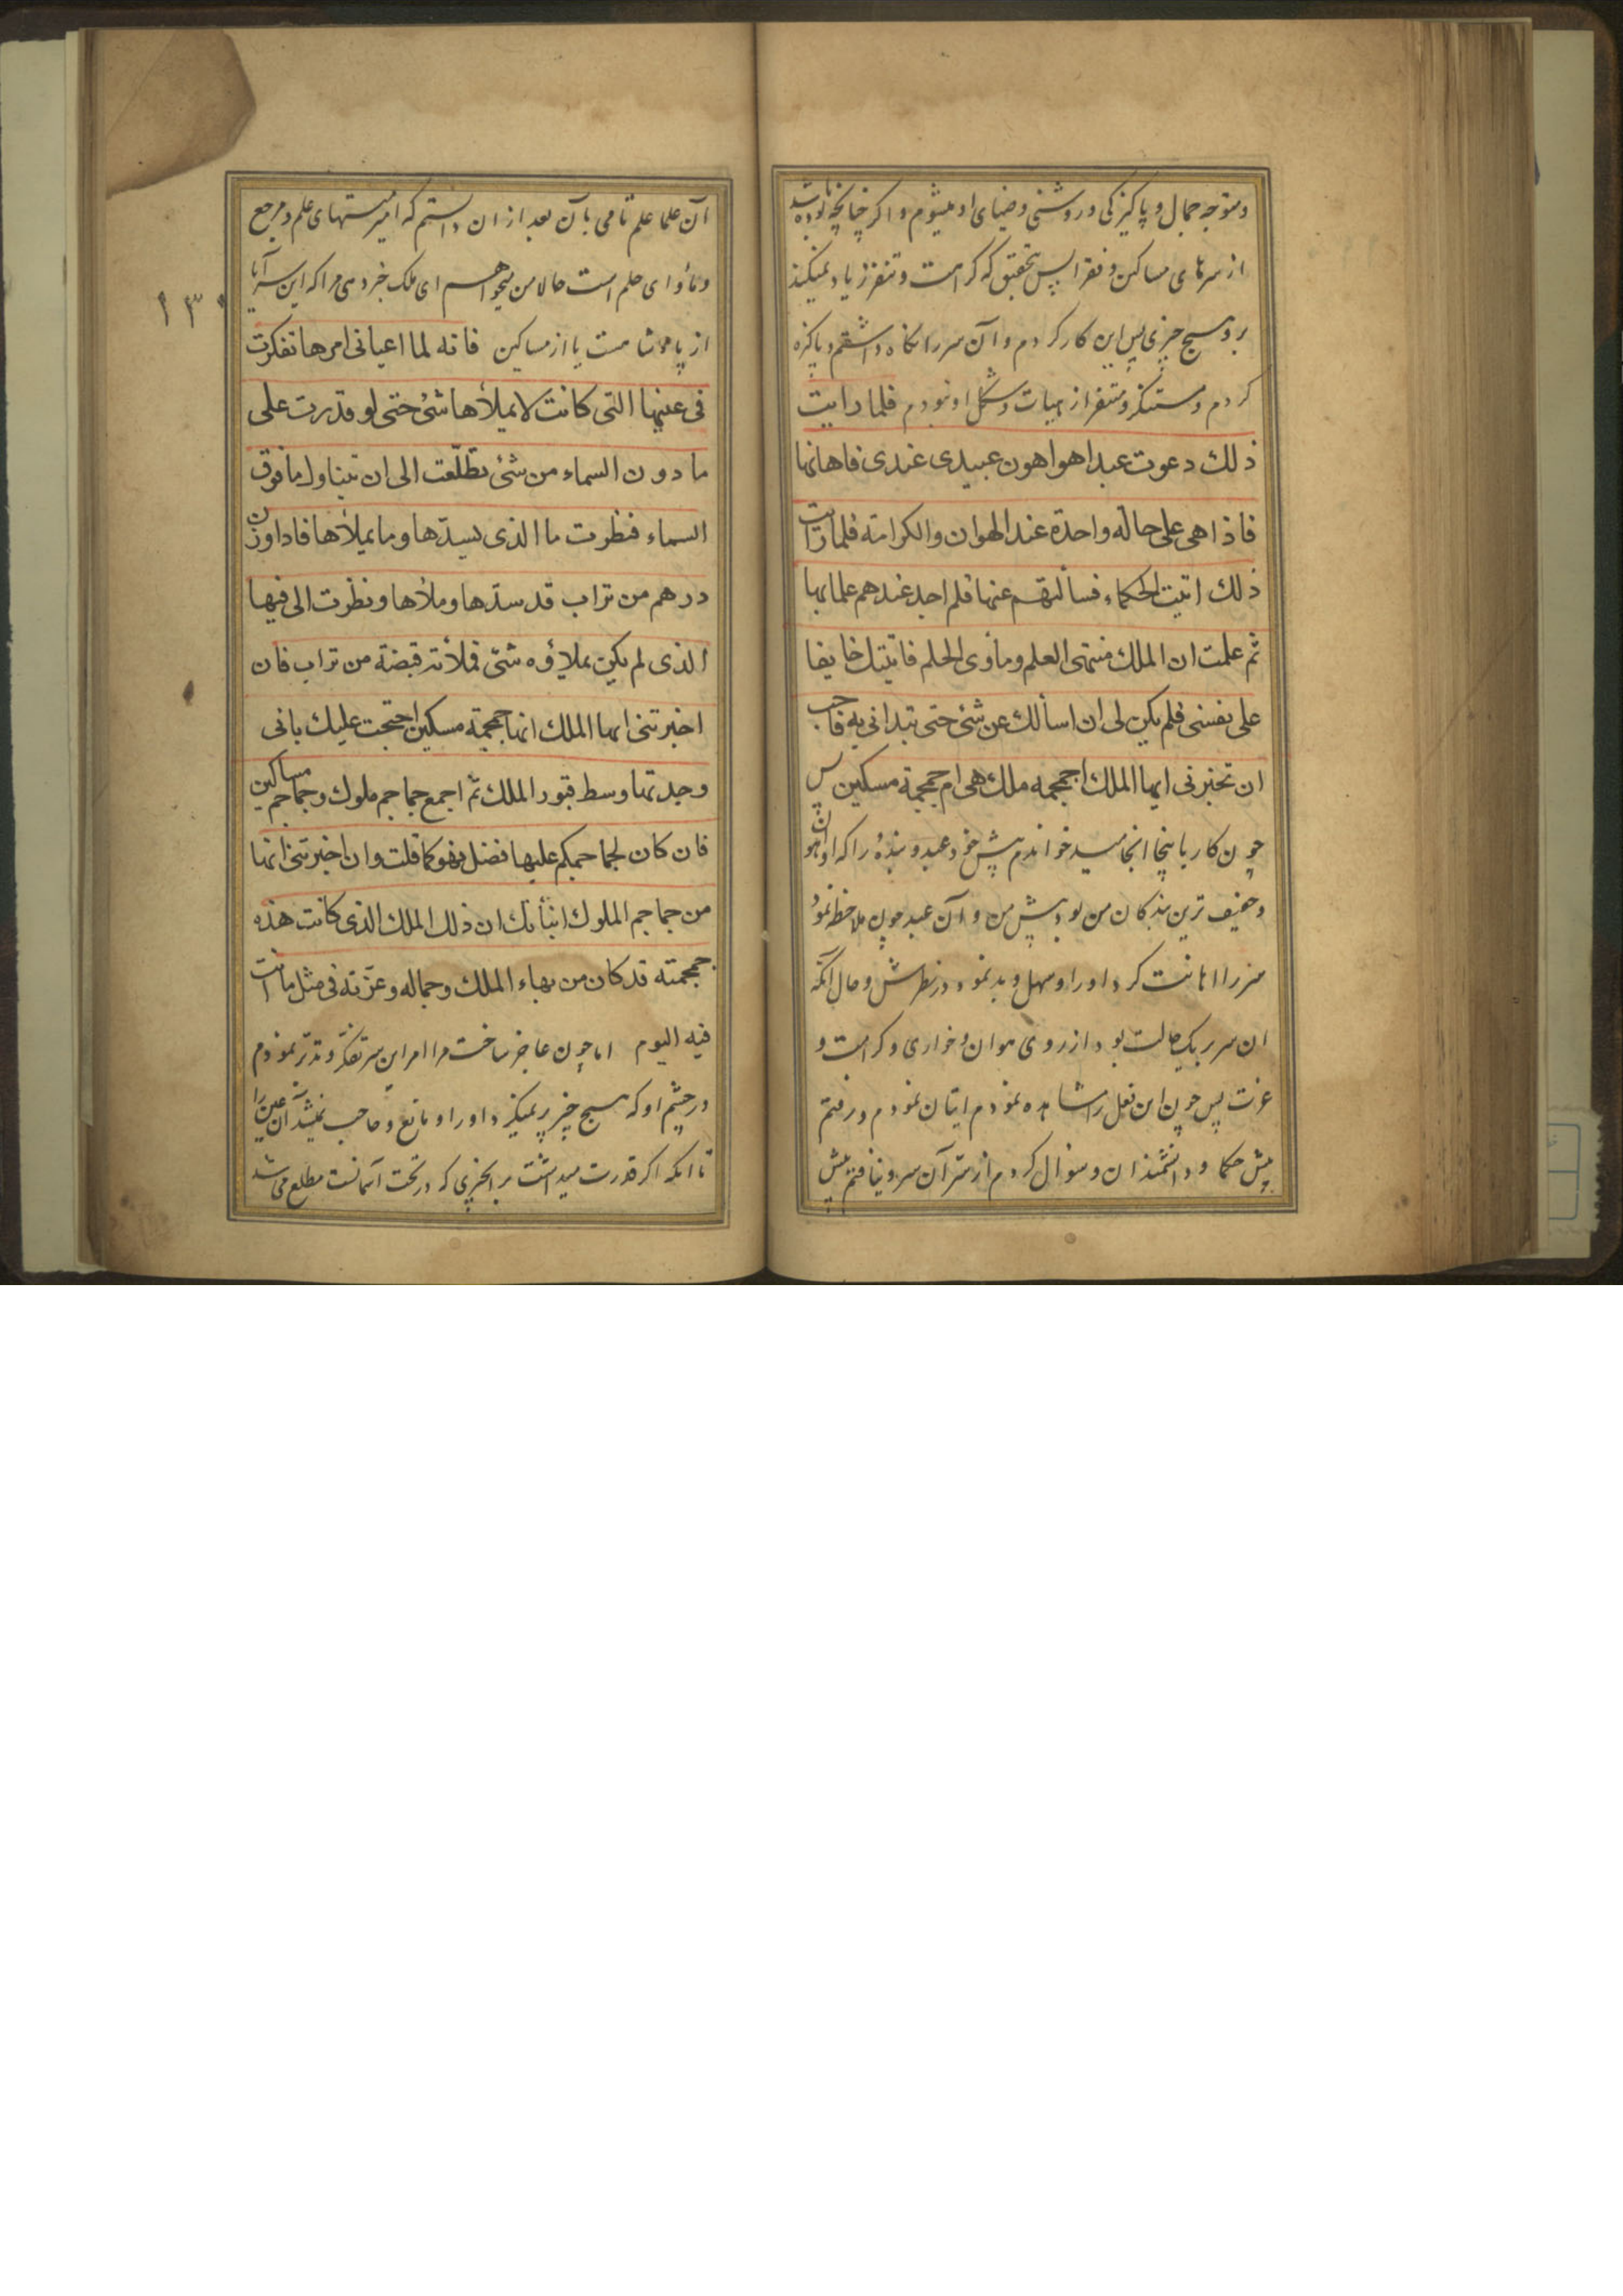 ومتوجه جمال و پاکیزکی و روشنی و ضیای او میشوم و اکر چنانچه بوده باشد
از سرهای مساکین و فقرا پس بتحقیق که کرامت و تنفر زیاد نمیکند
برو هیچ چیزی پس این کار کردم و آن سر را نکاه داشتم و پاکیزه
کردم و مستنکر و متنفر از هیات و شکل او نبودم فلما رایت
ذلك دعوت عبدا هو اهون عبیدی عندی فاهانها
فاذا هی علی حالة واحدة عند الهوان والكرامة فلما رایت
ذلك اتیت الحکماء فسألتهم عنها فلم اجد عندهم علما بها
ثم علمت ان الملك منتهی العلم ومأوی الحلم فاتیتك خایفا
علی نفسی فلم یکن لی ان اسألك عن شئ حتی تبدانی به فاحب
ان تخبرنی ایها الملك اجمجمه ملك هی ام جمجمة مسکین پس
چون کار باینجا انجامید خواندم پیش خود عبد و بندهٔ را که او اهون
و خفیف ترین بندکان من بود پیش من و آن عبد چون ملاحظه نمود
سر را اهانت کرد او را و سهل و بد نمود در نظرش و حال آنکه
ان سر بر یک حالت بود از روی هوان و خواری و کرامت و
عزت پس چون این فعل را مشاهده نمودم اتیان نمودم و رفتم
پیش حکما و دانشمندان و سؤال کردم از سر آن سر و نیافتم پیش
آن علما علم تامی بآن بعد از ان دانستم که امیر منتهای علم و مرجع
و مأوای حلم است حالا من میخواهم ای ملک خبر دهی مرا که این سر آیا
از پادشاهست یا از مساکین فانه لما اعیانی امرها تفکرت
فی عینها التی کانت لا یملأها شئ حتی لو قدرت علی
ما دون السماء من شئ تطلّعت الی ان تتناول ما فوق
السماء فنظرت ما الذی یسدّها وما یملأها فاذا وزن
درهم من تراب قد سدّها وملأها ونظرت الی فیها
الذی لم یکن یملاؤه شئ فملأته قبضة من تراب فان
اخبرتنی ایها الملك انها جمجمة مسکین احتججت علیك بانی
وجدتها وسط قبور الملك ثم اجمع جماجم ملوك وجماجم مساکین
فان کان لجماجمکم علیها فضل فهو کما قلت وان اخبرتنی انها
من جماجم الملوك انبأتك ان ذلك الملك الذی کانت هذه
جمجمته قد کان من بهاء الملك وجماله وعزّته فی مثل ما انت
فیه الیوم اما چون عاجز ساخت مرا امر این سر تفکر و تدبّر نمودم
در چشم او که هیچ چیز پر نمیکرد او را و مانع و حاجب نمیشد آن عین را
تا انکه اکر قدرت میداشت بر انچیزی که در تحت آسمانست مطلع می شد
١٣٠